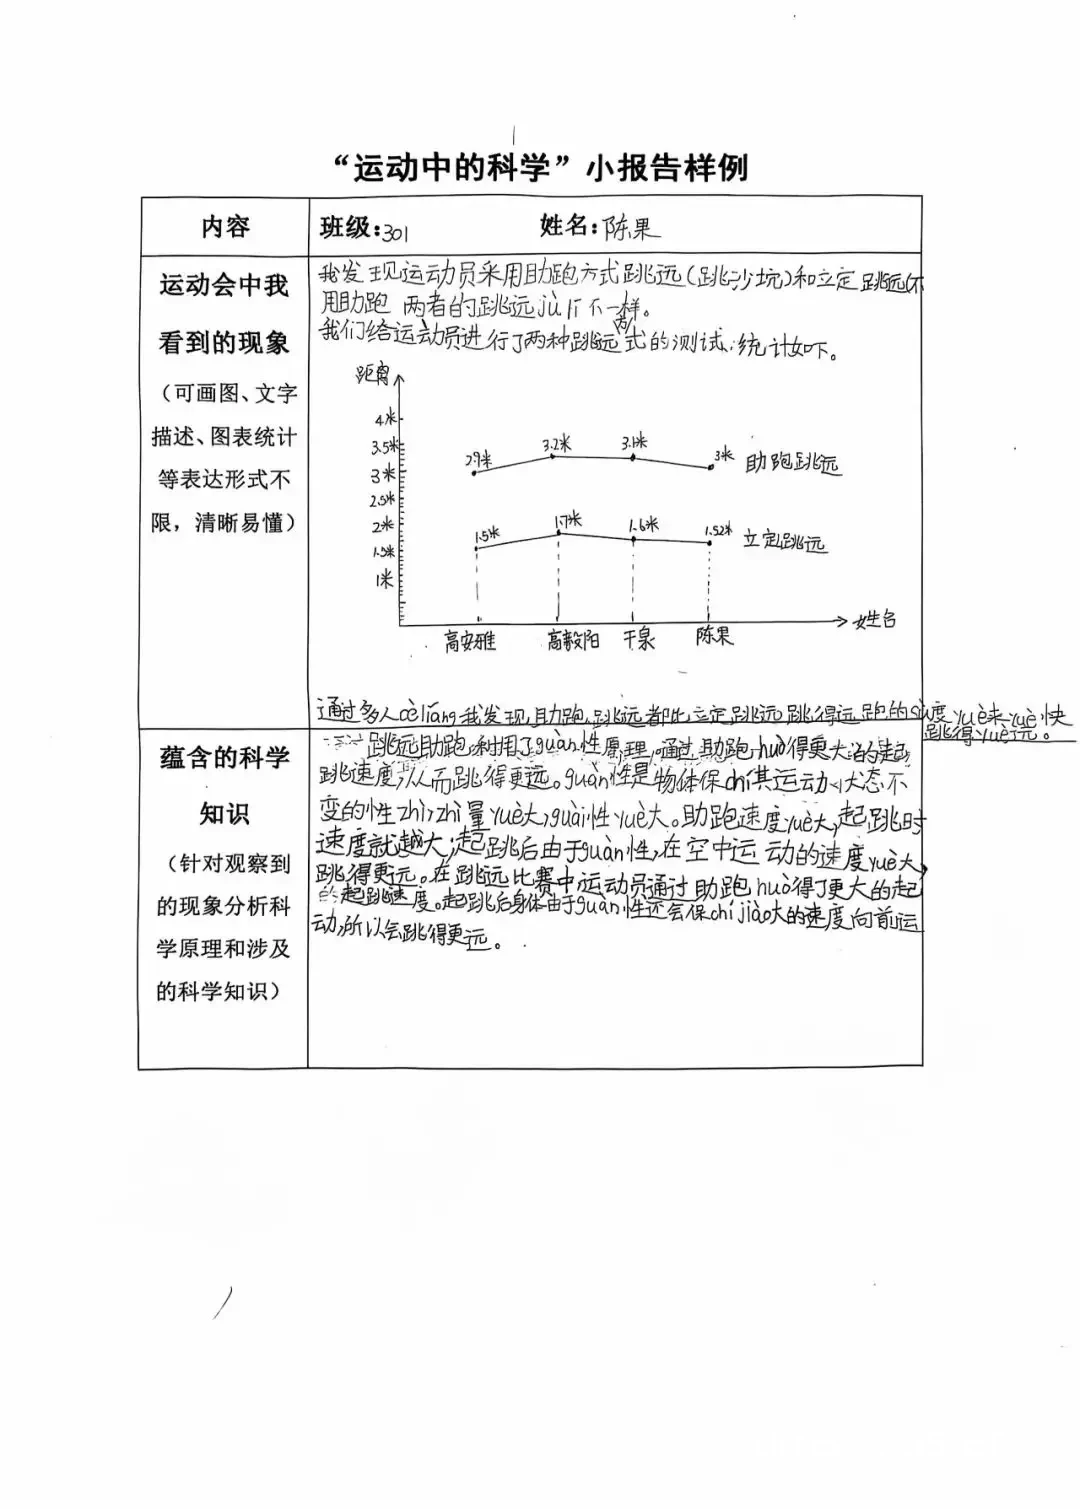 “运动中的科学”小报告样例
内容
班级:301 姓名:陈果
运动会中我
看到的现象
（可画图、文字
描述、图表统计
等表达形式不
限，清晰易懂）
我发现运动员采用助跑方式跳远(跳沙坑)和立定跳远(不
用助跑 两者的跳远jù lí不一样。
我们给运动员进行了两种跳远方式的测试,统计如下。
距离
4米
3.5米
3米
2.5米
2米
1.5米
1米
2.9米 3.2米 3.1米 3米 助跑跳远
1.5米 1.7米 1.6米 1.52米 立定跳远
姓名
高安雅 高毅阳 干泉 陈果
通过多人cèliáng我发现,助跑跳远都比立定跳远跳得远,跑的sù度yuè来yuè快
跳得yuè远。
蕴含的科学
知识
（针对观察到
的现象分析科
学原理和涉及
的科学知识）
跳远助跑,利用了guàn性原理,通过助跑,huò得更大的起
跳速度,从而跳得更远。guàn性是物体保chí其运动状态不
变的性zhì,zhì量yuè大,guàn性yuè大。助跑速度yuè大,起跳时
速度就越大,起跳后由于guàn性,在空中运动的速度yuè大,
跳得更远。在跳远比赛中,运动员通过助跑huò得了更大的起
的起跳速度。起跳后身体由于guàn性还会保chí jiào大的速度向前运
动,所以会跳得更远。